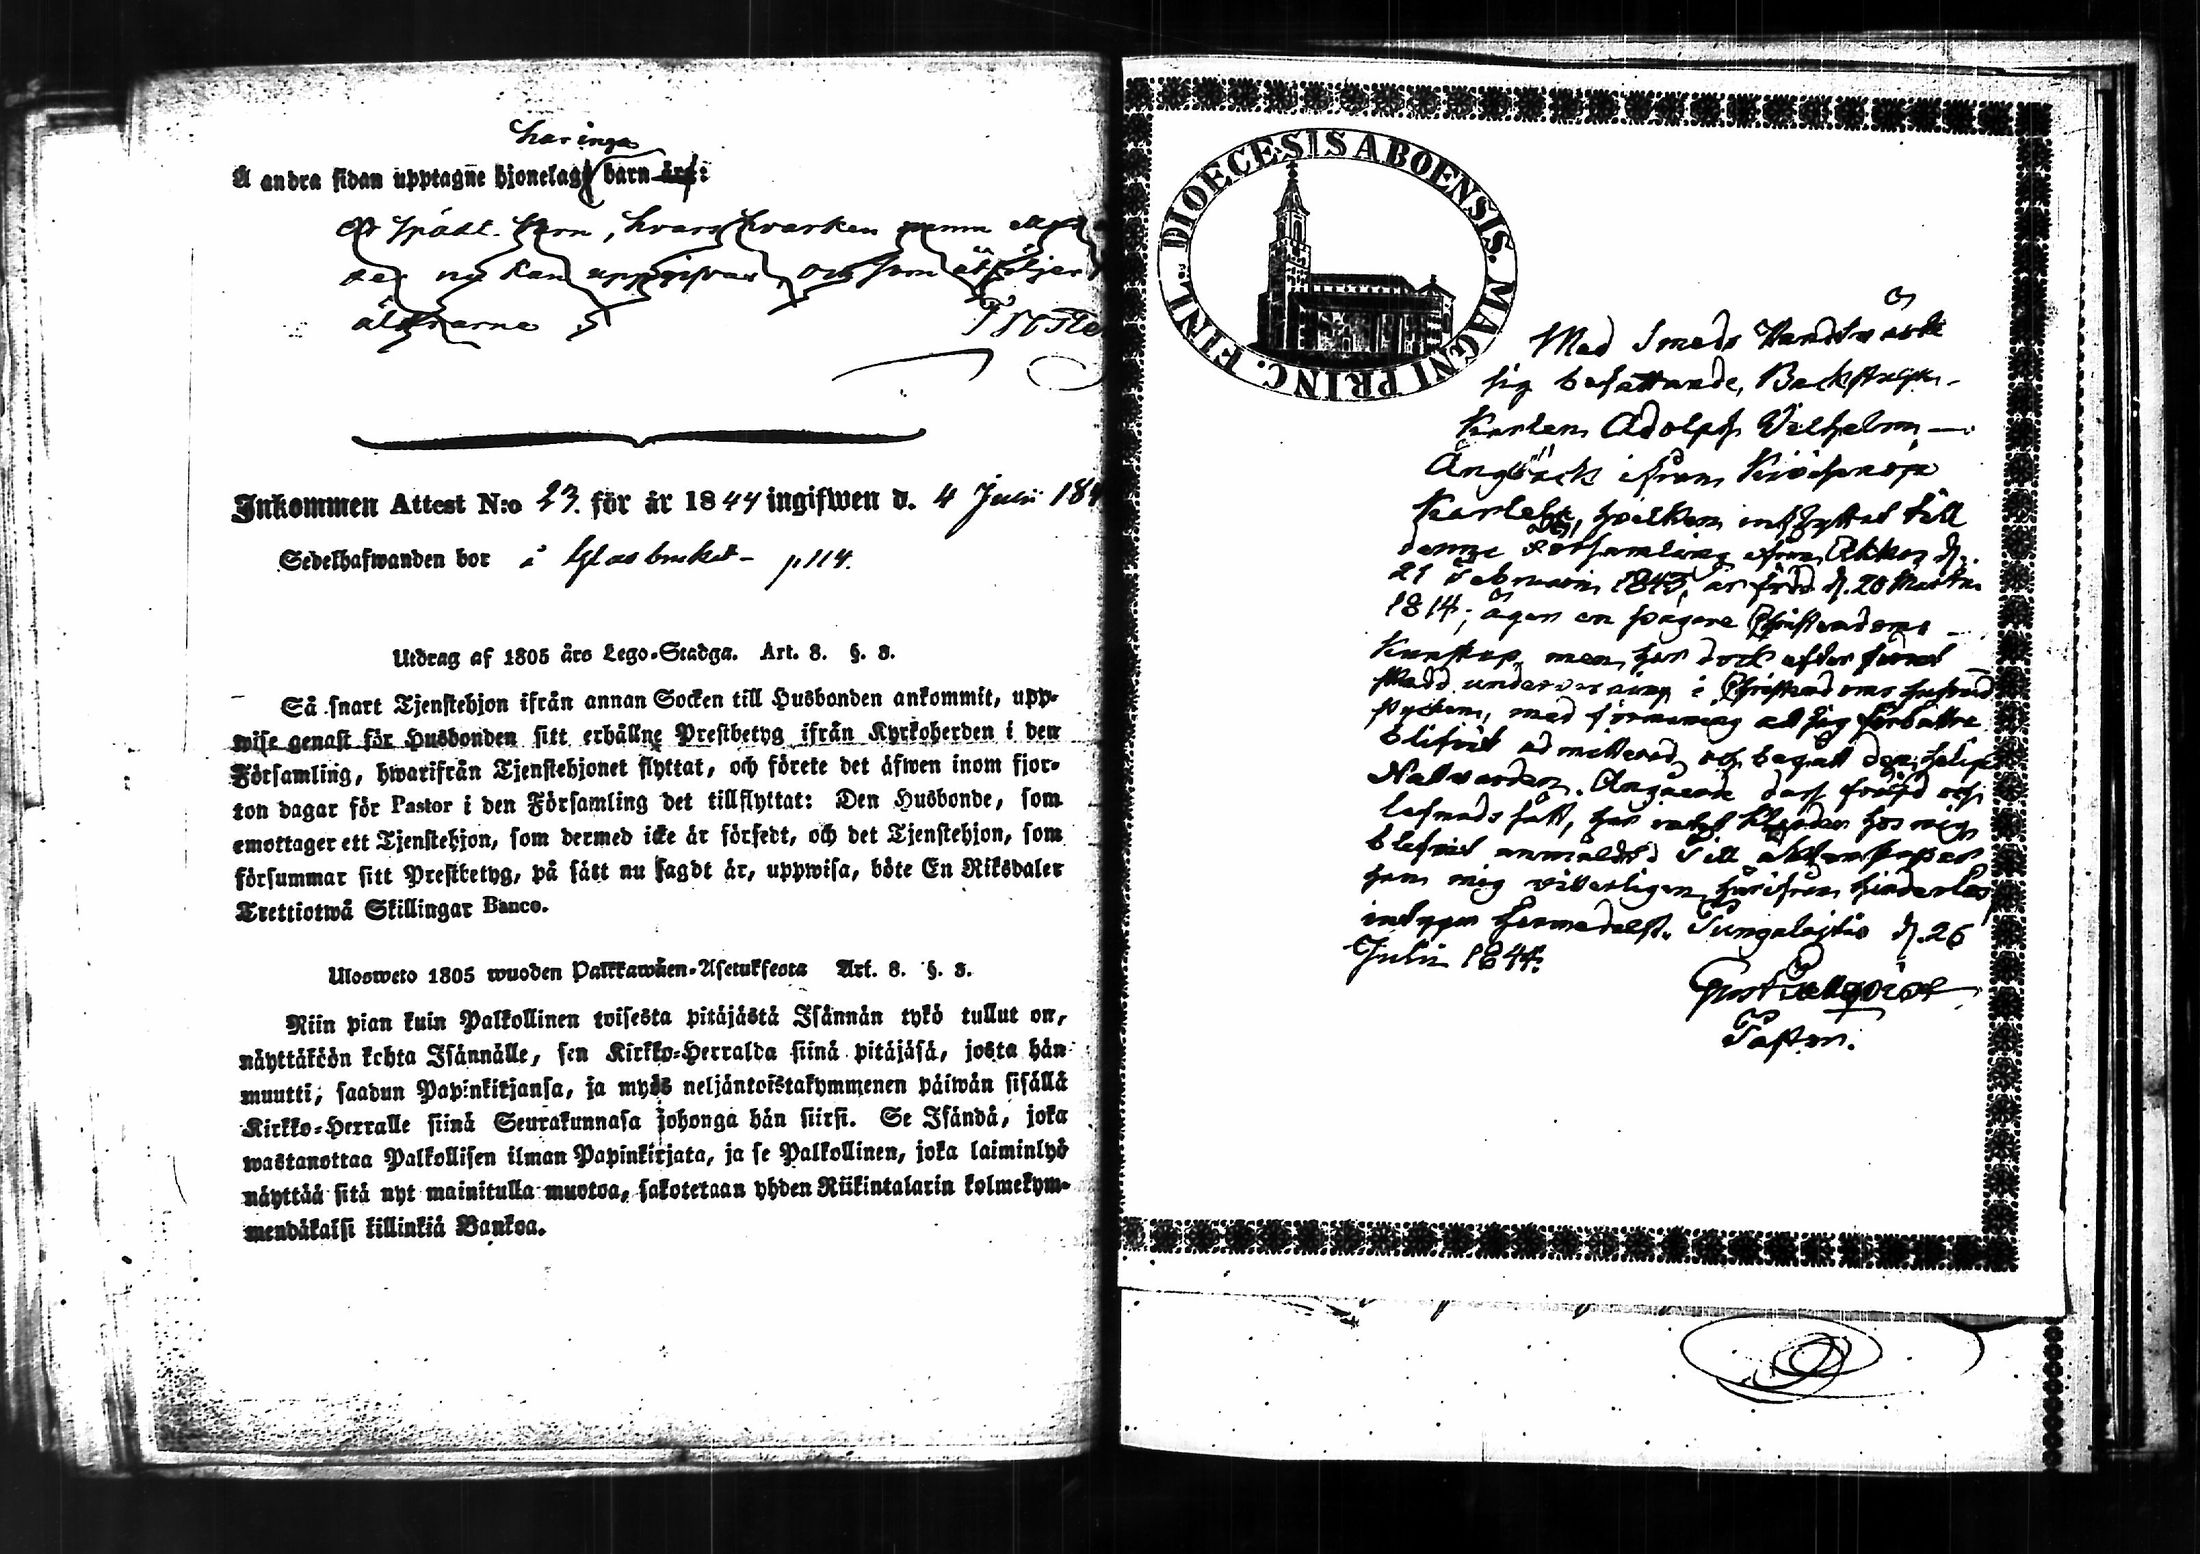 har inga
Å andra sidan upptagne hjonelag barn äro:
Ett spädt barn, hvars hvarken namn eller
nu kan uppgifvas, och som åtföljer
äldrarne
Inkommen Attest N:o 23. för år 1844 ingifwen d. 4 Julii 184
Sedelhafwanden bor å Glasbruket p 114.
Utdrag af 1805 års Lego-Stadga. Art. 8. §. 3.
Så snart Tjenstehjon ifrån annan Socken till Husbonden ankommit, upp-
wise genast för Husbonden sitt erhållne Prestbetyg ifrån Kyrkoherden i den
Församling, hwarifrån Tjenstehjonet flyttat, och förete det äfwen inom fjor-
ton dagar för Pastor i den Församling det tillflyttat: Den Husbonde, som
emottager ett Tjenstehjon, som dermed icke är försedt, och det Tjenstehjon, som
försummar sitt Prestbetyg, på sätt nu sagdt är, uppwisa, böte En Riksdaler
Trettiotwå Skillingar Banco.
Ulosweto 1805 wuoden Palkkawäen-Asetuksesta Art. 8. §. 3.
Niin pian kuin Palkollinen toisesta pitäjästä Isännän tykö tullut on,
näyttäkään kohta Isännälle, sen Kirkko-Herralda siinä pitäjäsä, josta hän
muutti, saadun Papinkirjansa, ja myös neljäntoistakymmenen päiwän sisällä
Kirkko-Herralle siinä Seurakunnasa johonga hän siirsi. Se Isändä, joka
wastanottaa Palkollisen ilman Papinkirjata, ja se Palkollinen, joka laiminlyö
näyttää sitä nyt mainitulla muotoa, sakotetaan yhden Riikintalarin kolmekym-
mendäkaksi killinkiä Bankoa.
DIOECESIS ABOENSIS. MAGNI PRINC. FINL.
Med Smeds Handtvärk
sig befattande, Backstugu-
Karlen Adolph Vilhelm
Ängbäck ifrån
Karleby, hvilken inflyttat till
denne Församling ifrån d.
21 Februarii 1843, är född d. 20 Martii
1814; äger en svagare Christendoms
Kunskap, men har dock efter
undervisning i Christendoms hufvud
stycken, med förmaning att sig förbättra
blifvit admitterad och begått den helige
Nattvarden. Angående dess frägd och
lefnads sätt, har intet klander hos mig
blifvit anmäldt. Till äktenskapet
är han mig vitterligen härifrån hinderlös
intygar härmedelst. Tungalajtio d. 26
Julii 1844.
Pastor.